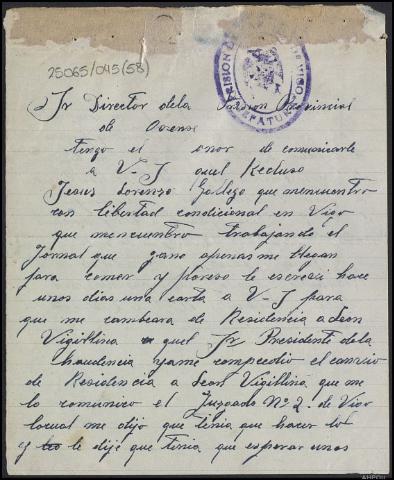 25065/045(58)
PRISION
JEFATURA
Sr Director dela Prision Provincial
de Orense
tengo el onor de comunicarle
a V-I quel Recluso
Jesus Lorenzo Gallego que mencuentro
con libertad condicional en Vigo
que mencuentro trabajando el
Jornal que gano apenas me llegan
para comer y poreso le escresii hace
unos dias una carta a V-I para
que me cambeara de Residencia a Leon
Vigillina quel Sr Presidente dela
haudencia yame compcedio el camvio
de Residencia a Leon Vigillina que me
lo comunico el Juzgado Nº 2. de Vigo
locual me dijo que tenia que hacer lo
y le dije que tinia que esperar unos
AHPOu